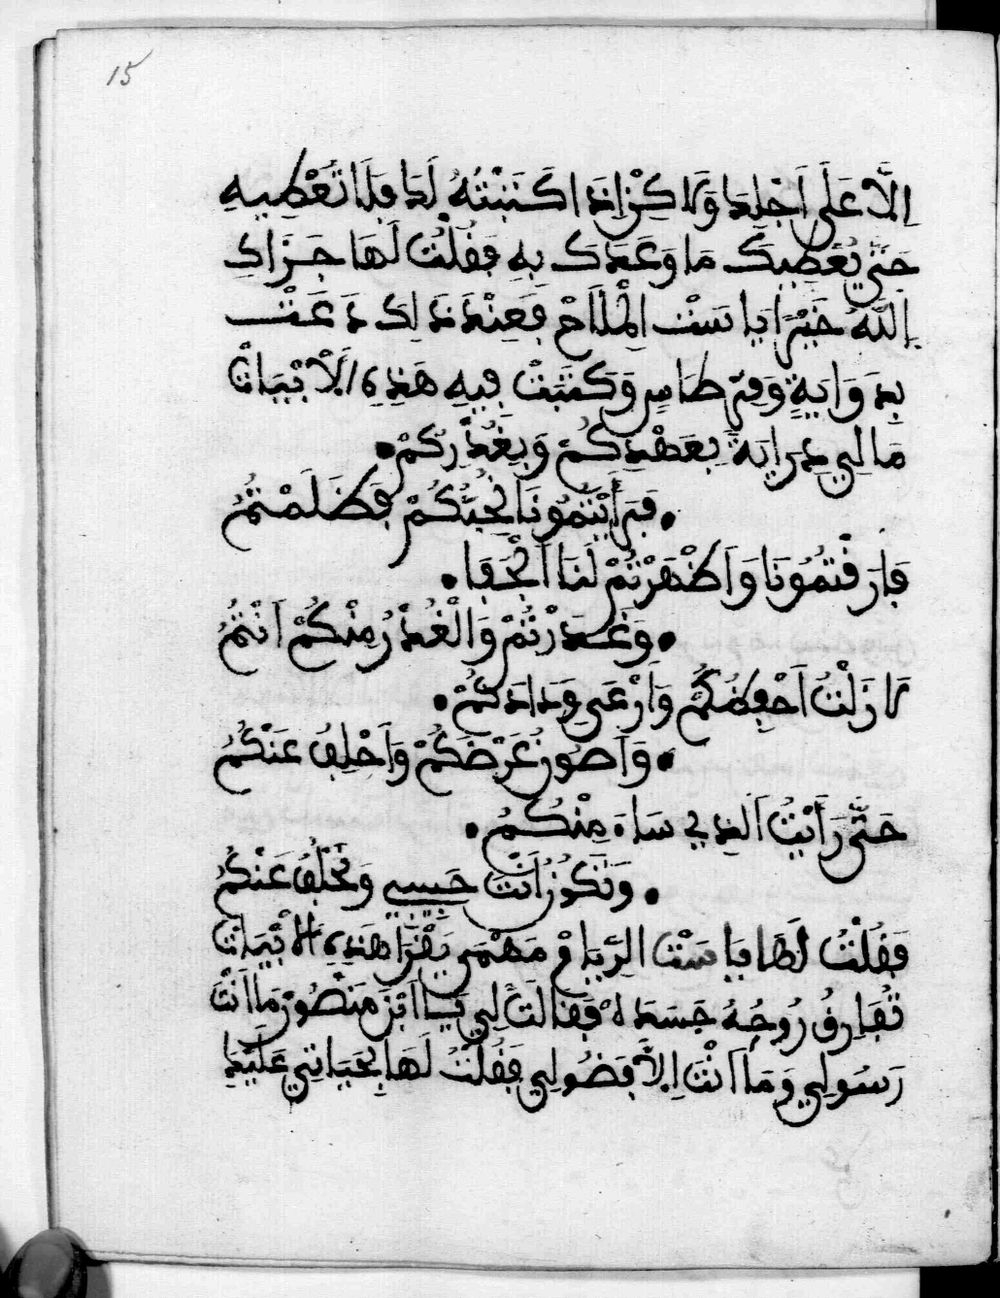 15
اِلَّا عَلَى اَجْلِكَ وَلَاكِنْ اِذَا كَتَبْتُهُ لَكَ فَلَا تُعْطِيهِ
حَتَّى يُعْطِيكَ مَا وَعَدَكَ بِهِ فَقُلْتُ لَهَا جَزَاكِ
اللَّهُ خَيْرًا يَا سَتْ الْمِلَاحْ فَعِنْدَ ذَلِكَ دَعَتْ
بِدَوَايَةٍ وَفِرْطَاسٍ وَكَتَبَتْ فِيهِ هَذِهِ الْاَبْيَاتْ
مَا لِي دِرَايَةً بِعَهْدِكُمْ وَبِغُدْرِكُمْ
فَرَأَيْتُمُونَا بِحُبِّكُمْ فَظَلَمْتُمُ
فَارَقْتُمُونَا وَاَظْهَرْتُمْ لَنَا الْجَفَا
وَغَدَرْتُمْ وَالْغُدْرُ مِنْكُمْ اَنْتُمُ
لَا زَلْتُ اَحْفِظُكُمْ وَاَرْعَى وِدَادَكُمْ
وَاَصُونُ عَرْضَكُمْ وَاَحْلِفُ عَنْكُمُ
حَتَّى رَأَيْتُ الَّذِي سَاءَ مِنْكُمُ
وَتَكُونُ اَنْتَ حَبِيبِي وَتَحْلُفُ عَنْكُمُ
فَقُلْتُ لَهَا يَا سَتْ الرِّيَاحْ مَهْمَى يَقْرَا هَذِهِ الْاَبْيَاتْ
تُفَارِقُ رُوحُهُ جَسَدَهُ فَقَالَتْ لِي يَا ابْنَ مَنْصُورْ مَا اَنْتَ
رَسُولِي وَمَا اَنْتَ اِلَّا فَضُولِي فَقُلْتُ لَهَا بِحَيَاتِي عَلَيْكِ